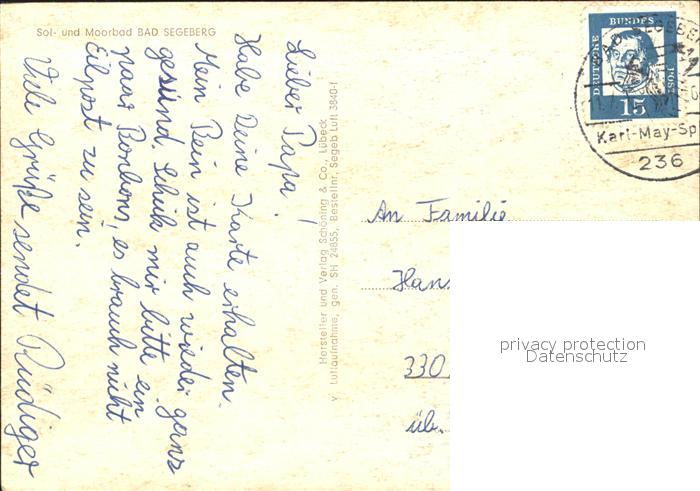 Sol- und Moorbad BAD SEGEBERG
Lieber Papa!
Habe Deine Karte erhalten.
Mein Bein ist auch wieder ganz
gesund. Schick mir bitte ein
paar Bonbons, es brauch nicht
Eilpost zu sein.
Viele Grüße sendet Rüdiger
Hersteller und Verlag Schöning & Co., Lübeck
Luftaufnahme, gen. SH 24855, Bestellnr. Segeb Luft 3840-1
DEUTSCHE BUNDESPOST
15
BAD SEGEBE
Karl-May-Sp
236
An Familie
Hans
330
üb.
privacy protection
Datenschutz